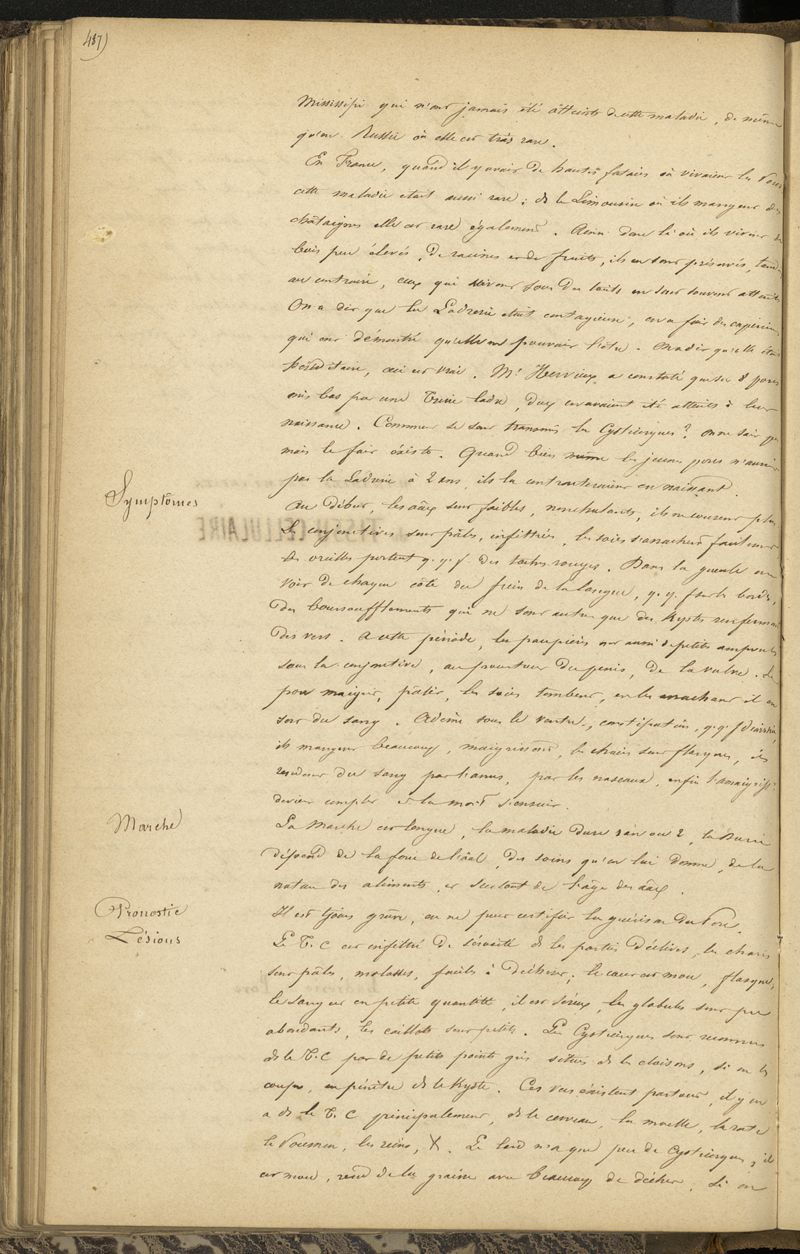 487)
Mississipi qui n'ont jamais été atteints de cette maladie, de même
qu'en Russie où elle est très rare.
En France, quand il y avait de hautes futaies où vivaient les Porcs
cette maladie était aussi rare; ds le Limousin où ils mangent des
châtaignes elle est rare également. Ainsi donc là où ils vivent de
bois peu élevés, de racines et de fruits, ils en sont préservés, tandis
au contraire, ceux qui vivent sous des toits en sont souvent atteints
On a dit que la Ladrerie était contagieuse, on a fait des expériences
qui ont démontré qu'elle ne pouvait l'être. On a dit qu'elle était
héréditaire, ceci est vrai. Mr Hervieux a constaté que sur 8 porcs
mis bas par une Truie ladre, deux avaient été atteints à leur
naissance. Comment se sont transmis les Cysticerques? on ne sait pas
mais le fait existe. Quand bien même les jeunes porcs n'auraient
pas la Ladrerie à 2 ans, ils la contracteraient en naissant.
Symptômes
Au début, les aäx sont faibles, nonchalants, ils ne courent plus
Les conjonctives sont pâles, infiltrées, les soies s'arrachent facilement
les oreilles portent q.q.f des taches rouges. Dans la gueule on
voit de chaque côté du frein de la langue, q.q.f sur les bords,
des boursoufflements qui ne sont autres que des Kystes renfermant
des vers. A cette période, les paupières ont aussi de petites ampoules
sous la conjonctive, au pourtour du pénis, de la vulve. La
peau maigrit, pâlit, les soies tombent, en les arrachant il en
sort du sang. Œdème sous le ventre, constipation, q.q.f diarrhée,
ils mangent beaucoup, maigrissent, les chairs sont flasques, ils
rendent du sang par l'anus, par les naseaux, enfin l'amaigrisst
devient complet et la mort s'ensuit.
Marche
La Marche est longue, la maladie dure 1 an ou 2, la durée
dépend de la force de l'aäl, des soins qu'on lui donne, de la
nature des aliments, et surtout de l'âge des aäx.
Pronostic
Il est tjours grave, on ne peut certifier la guérison du Porc.
Lésions
Le T.C est infiltré de sérosité ds les parties déclives, les chairs
sont pâles, molasses, faciles à déchirer; le cœur est mou, flasque,
le sang est en petite quantité, il est séreux, les globules sont peu
abondants, les caillots sont petits. Les Cysticerques sont reconnus
ds le T.C par de petits points gris situés ds les cloisons, si on les
coupe, on pénètre ds le Kyste. Ces vers existent partout, il y en
a ds le T.C principalement, ds le cerveau, la moelle, la rate
le Poumon, les reins, X. Le lard n'a que peu de Cysticerques, il
est mou, rend de la graisse avec beaucoup de déchet. Si on